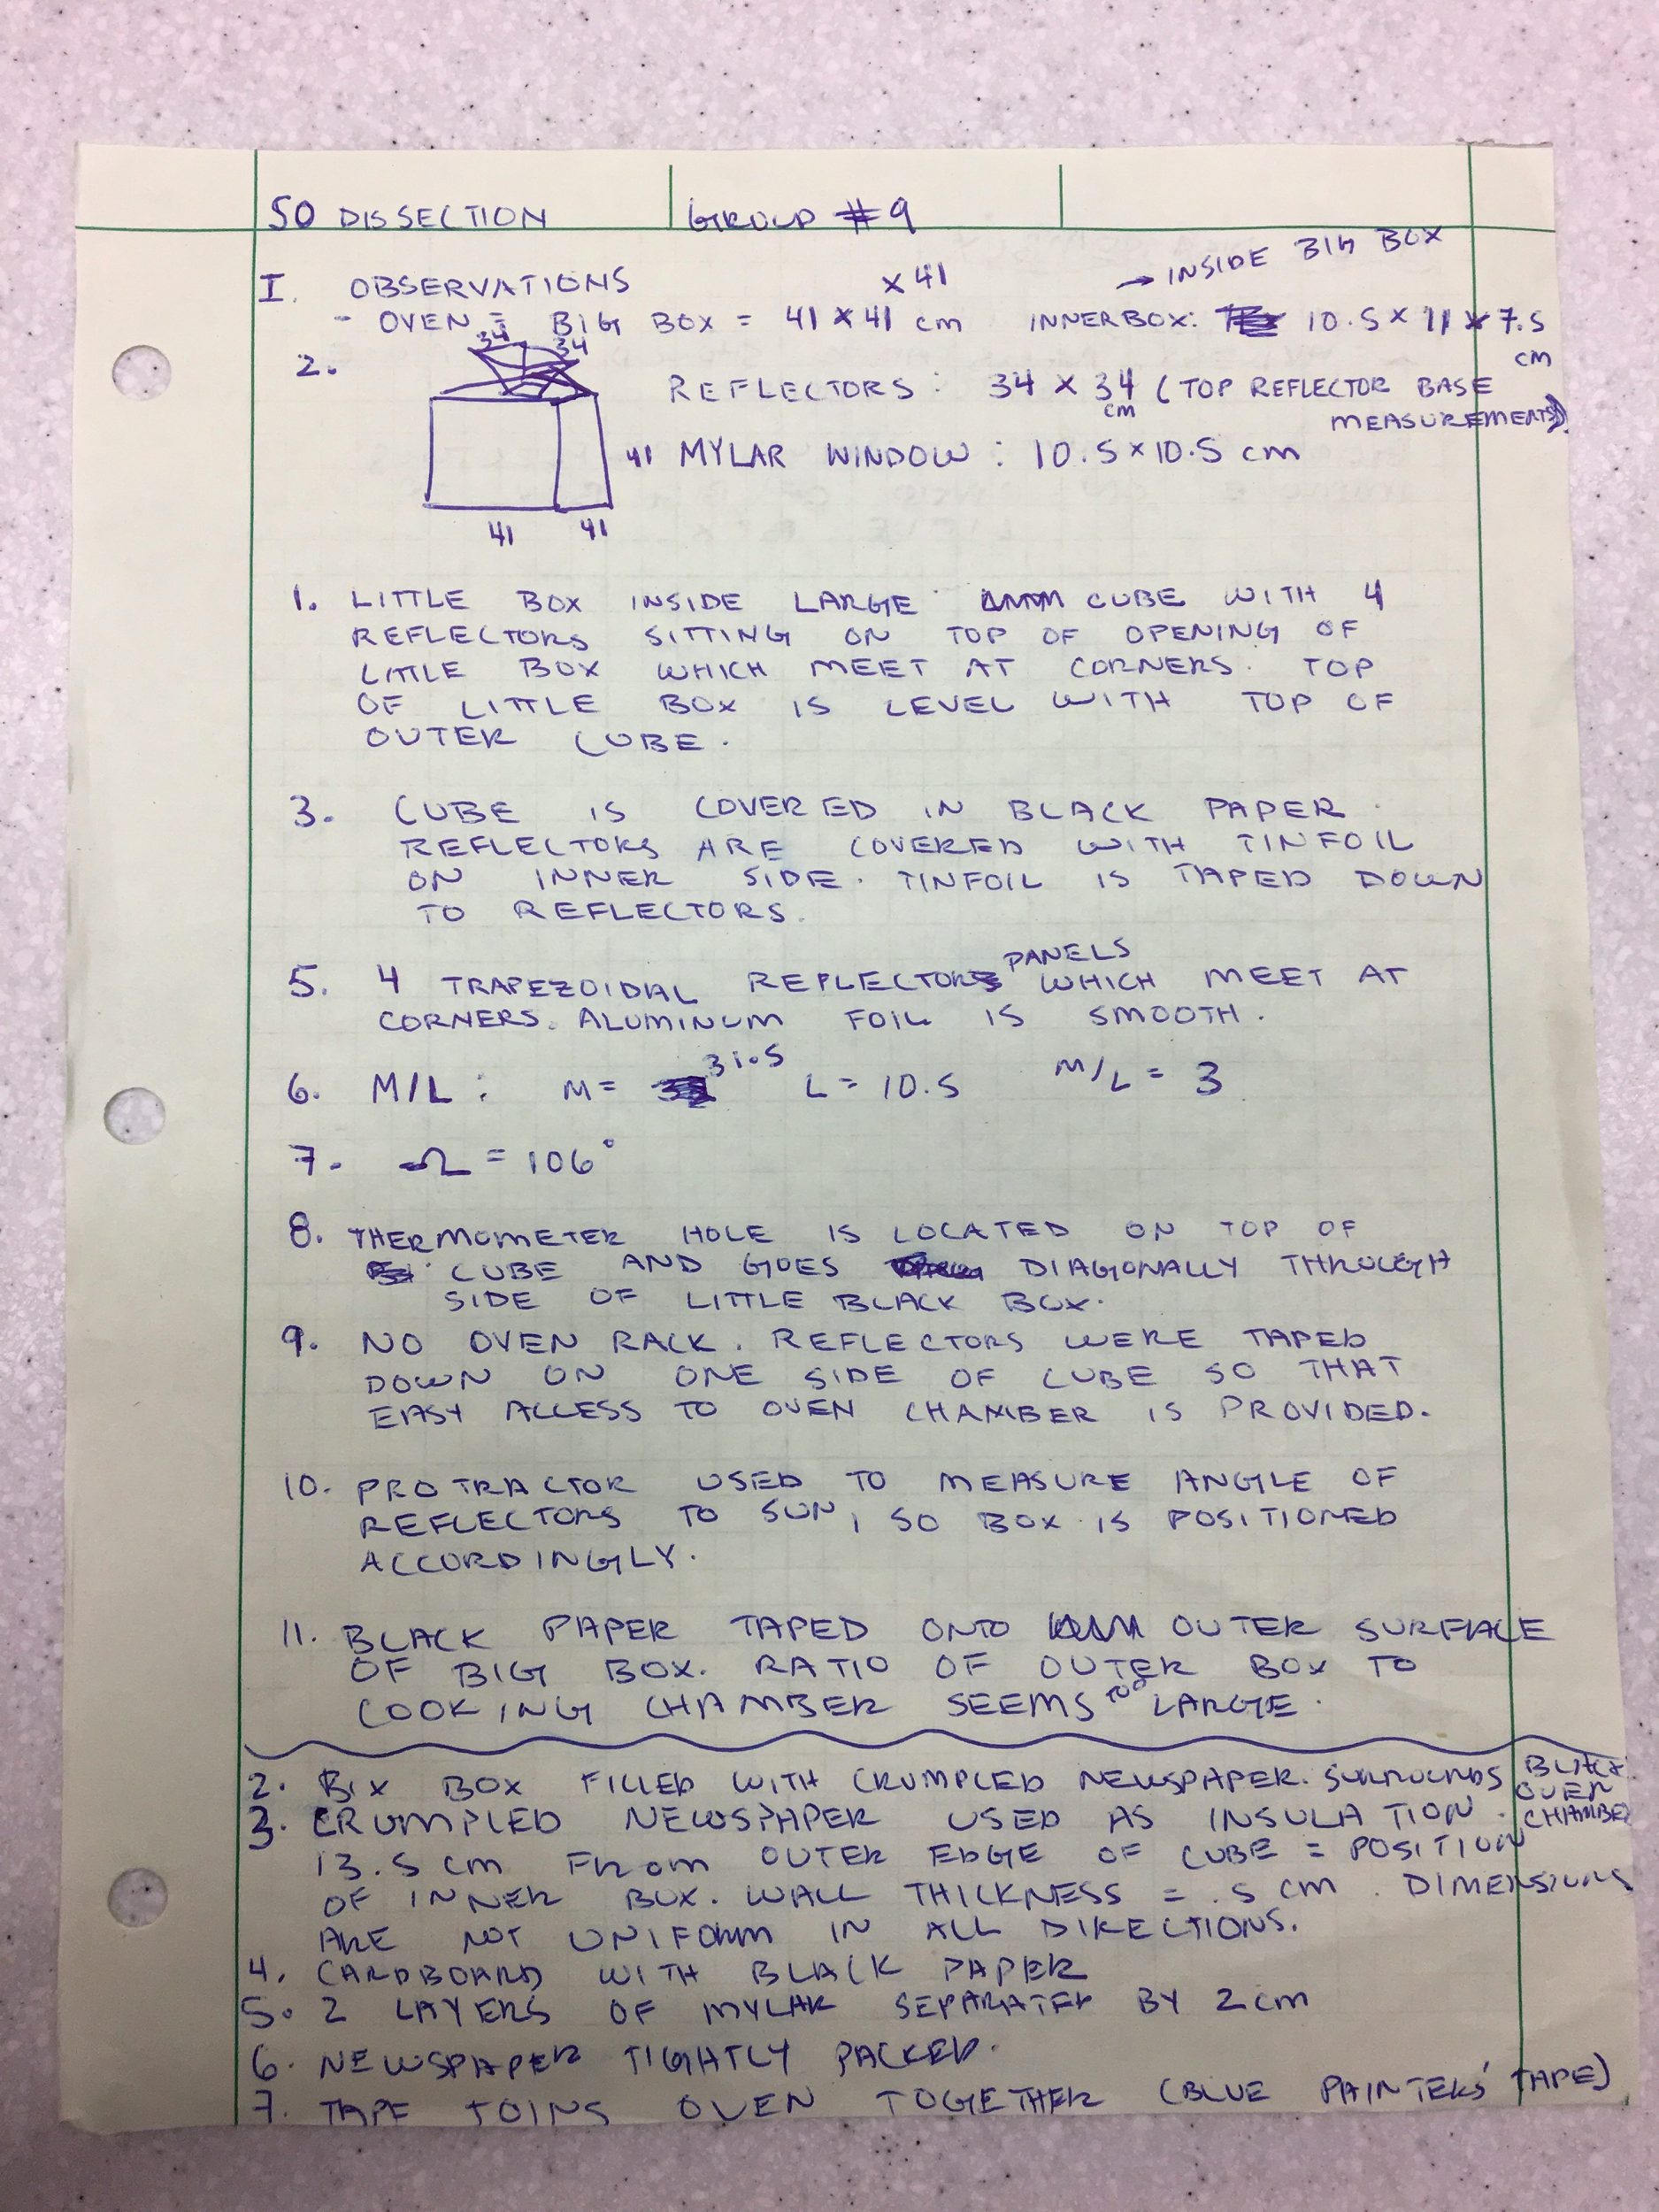 SO DISSECTION GROUP #9
I. OBSERVATIONS
- OVEN = BIG BOX = 41 x 41 x 41 cm INNER BOX: 10.5 x 11 x 7.5 cm → INSIDE BIG BOX
2. 34 34
REFLECTORS: 34 x 34 cm (TOP REFLECTOR BASE
MEASUREMENTS).
41 MYLAR WINDOW: 10.5 x 10.5 cm
41 41
1. LITTLE BOX INSIDE LARGE CUBE WITH 4
REFLECTORS SITTING ON TOP OF OPENING OF
LITTLE BOX WHICH MEET AT CORNERS. TOP
OF LITTLE BOX IS LEVEL WITH TOP OF
OUTER CUBE.
3. CUBE IS COVERED IN BLACK PAPER.
REFLECTORS ARE COVERED WITH TINFOIL
ON INNER SIDE. TINFOIL IS TAPED DOWN
TO REFLECTORS.
5. 4 TRAPEZOIDAL REFLECTOR PANELS WHICH MEET AT
CORNERS. ALUMINUM FOIL IS SMOOTH.
6. M/L: M = 31.5 L = 10.5 M/L = 3
7. Ω = 106°
8. THERMOMETER HOLE IS LOCATED ON TOP OF
CUBE AND GOES DIAGONALLY THROUGH
SIDE OF LITTLE BLACK BOX.
9. NO OVEN RACK. REFLECTORS WERE TAPED
DOWN ON ONE SIDE OF CUBE SO THAT
EASY ACCESS TO OVEN CHAMBER IS PROVIDED.
10. PROTRACTOR USED TO MEASURE ANGLE OF
REFLECTORS TO SUN, SO BOX IS POSITIONED
ACCORDINGLY.
11. BLACK PAPER TAPED ONTO OUTER SURFACE
OF BIG BOX. RATIO OF OUTER BOX TO
COOKING CHAMBER SEEMS TOO LARGE.
2. BIX BOX FILLED WITH CRUMPLED NEWSPAPER. SURROUNDS BLACK
OVEN
CHAMBER
3. CRUMPLED NEWSPAPER USED AS INSULATION.
13.5 cm FROM OUTER EDGE OF CUBE = POSITION
OF INNER BOX. WALL THICKNESS = .5 cm. DIMENSIONS
ARE NOT UNIFORM IN ALL DIRECTIONS.
4. CARDBOARD WITH BLACK PAPER
5. 2 LAYERS OF MYLAR SEPARATED BY 2 cm
6. NEWSPAPER TIGHTLY PACKED.
7. TAPE JOINS OVEN TOGETHER (BLUE PAINTERS' TAPE)